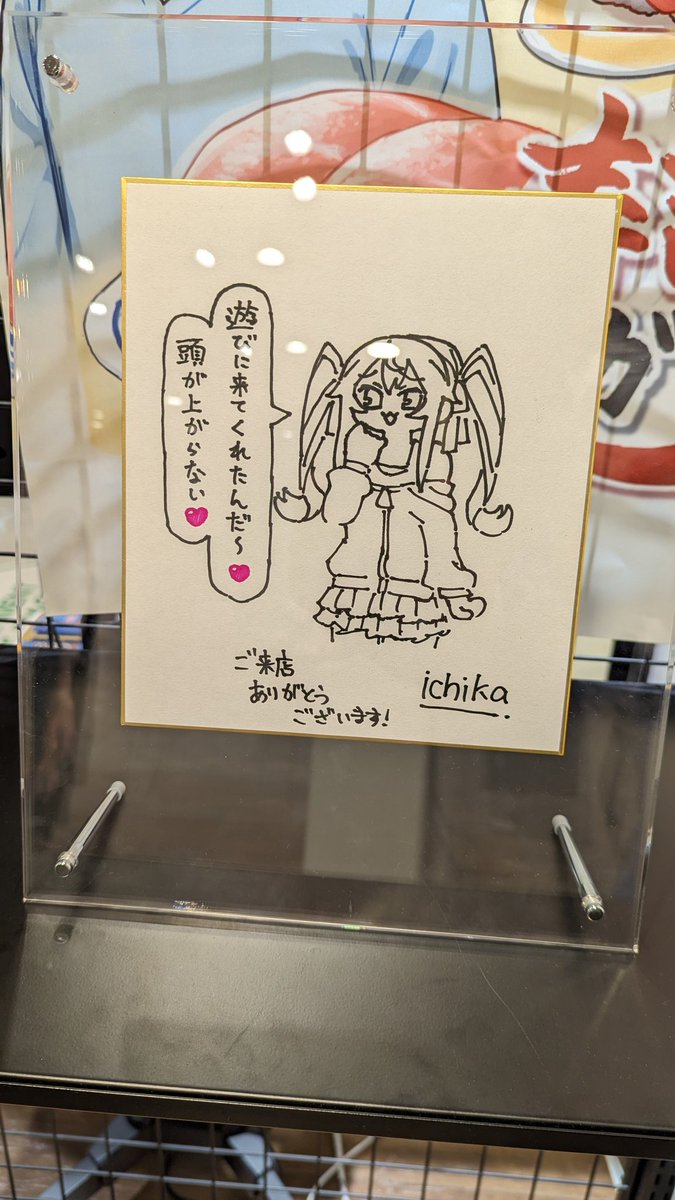 遊びに来てくれたんだ〜
頭が上がらない
ご来店
ありがとう
ございます!
ichika
が